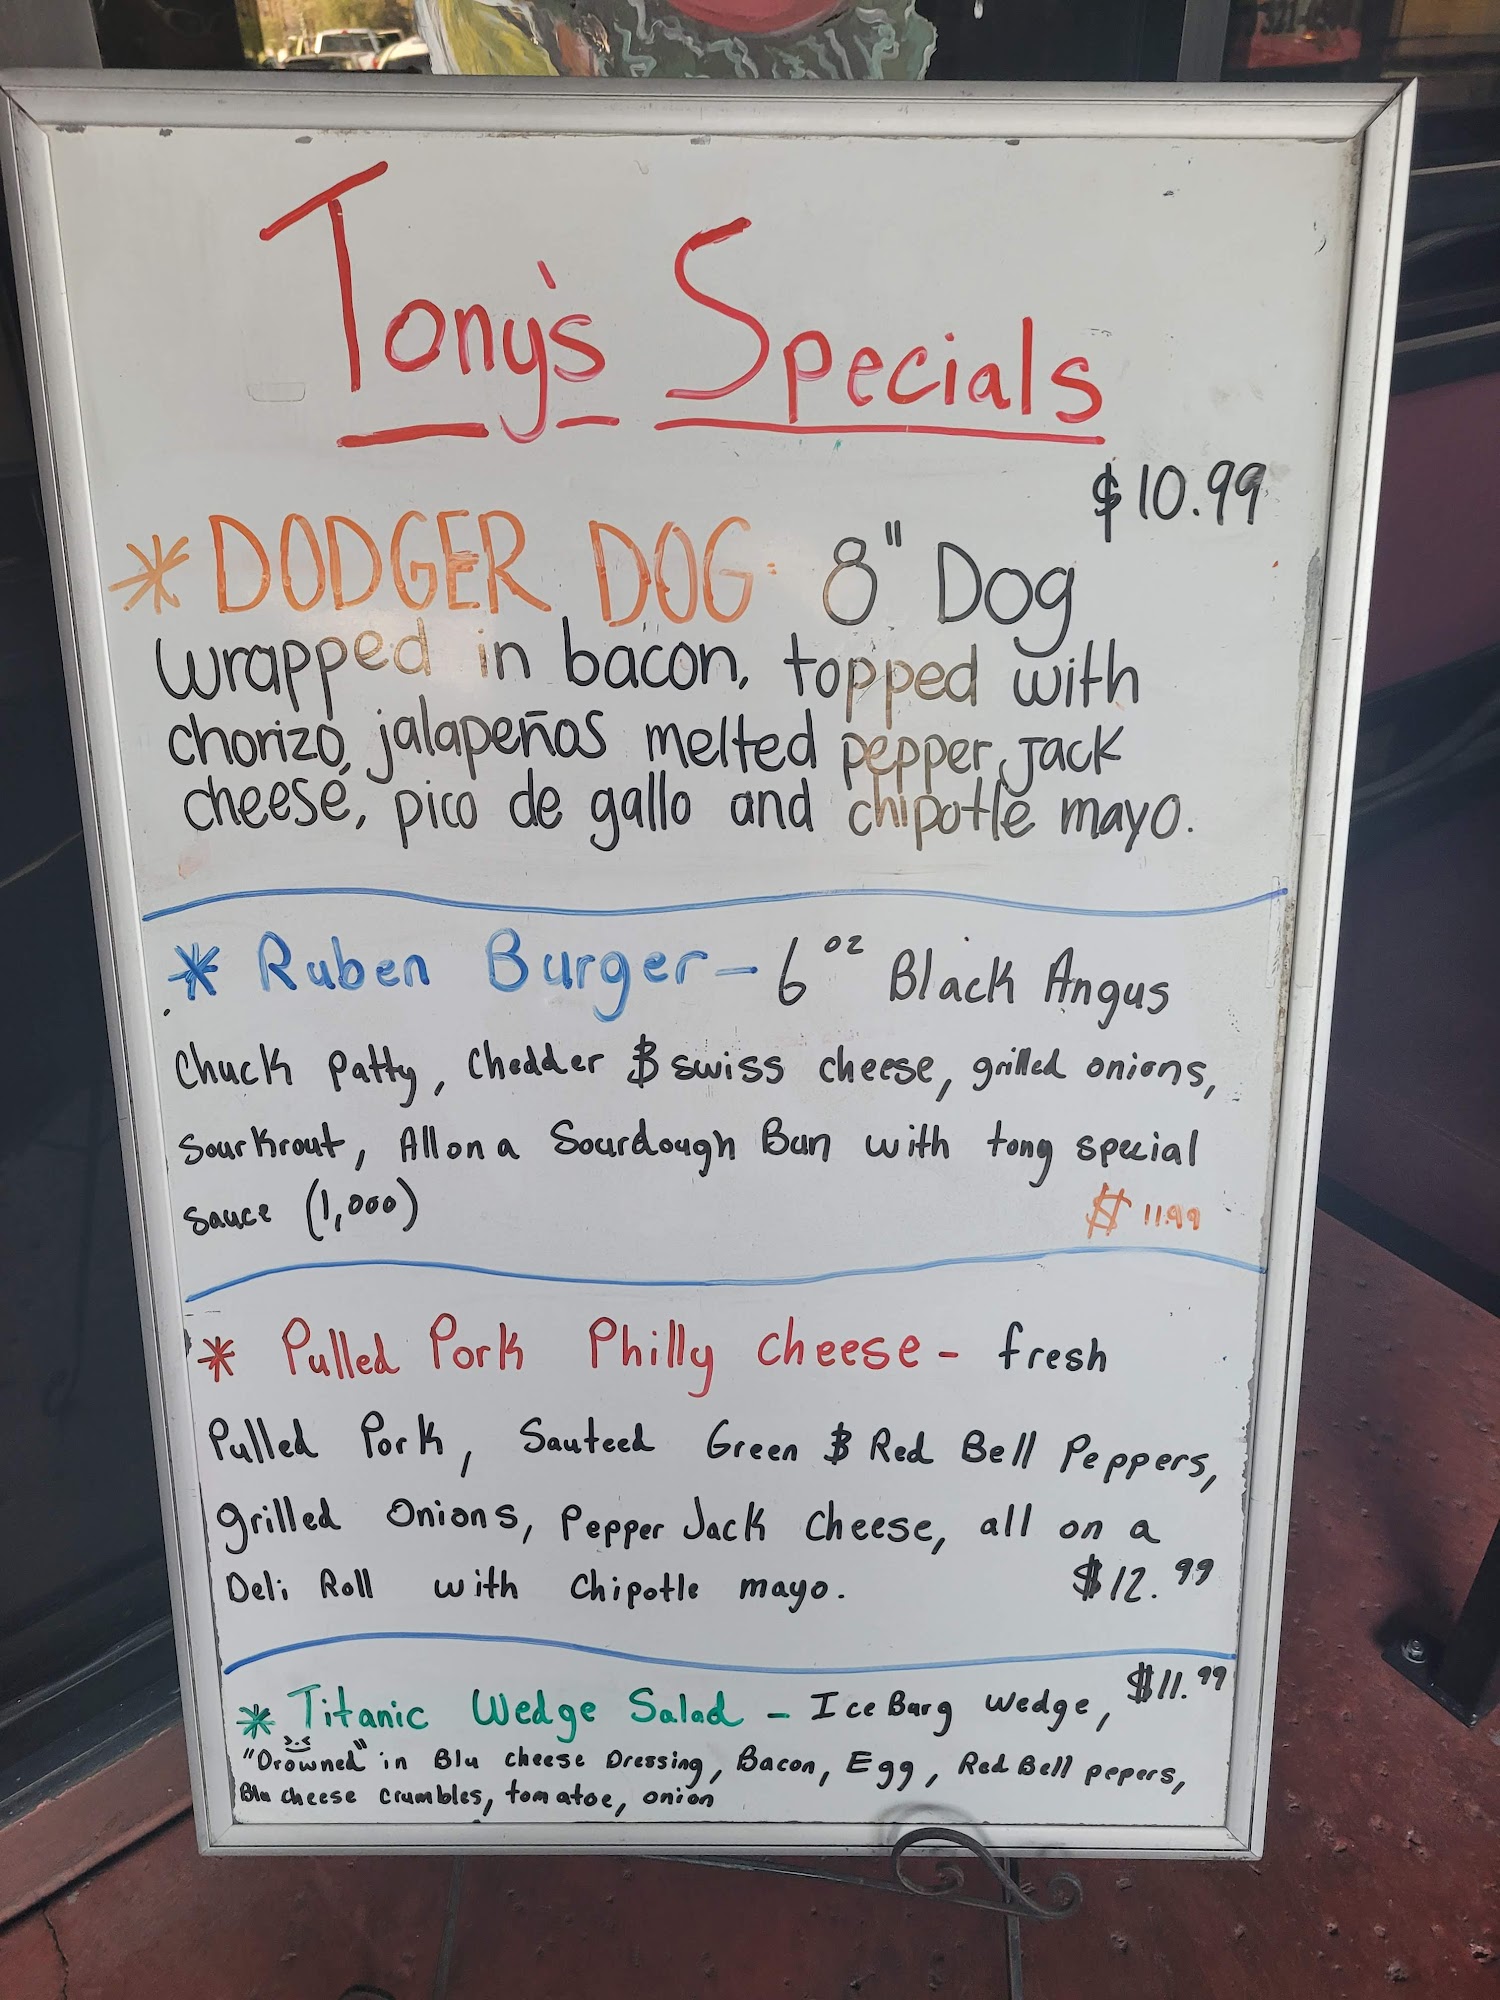 Tony's Specials
$10.99
* DODGER DOG: 8" Dog
wrapped in bacon, topped with
chorizo, jalapeños melted pepper Jack
cheese, pico de gallo and chipotle mayo.
* Ruben Burger - 6 oz Black Angus
Chuck Patty, Chedder & swiss cheese, grilled onions,
Sourkrout, All on a Sourdough Bun with tony special
sauce (1,000)
$ 11.99
* Pulled Pork Philly Cheese - fresh
Pulled Pork, Sauteed Green & Red Bell Peppers,
grilled Onions, Pepper Jack Cheese, all on a
Deli Roll with Chipotle mayo. $12.99
* Titanic Wedge Salad - Ice Burg Wedge, $11.99
"Drowned" in Blu cheese Dressing, Bacon, Egg, Red Bell pepers,
Blu cheese crumbles, tomatoe, onion